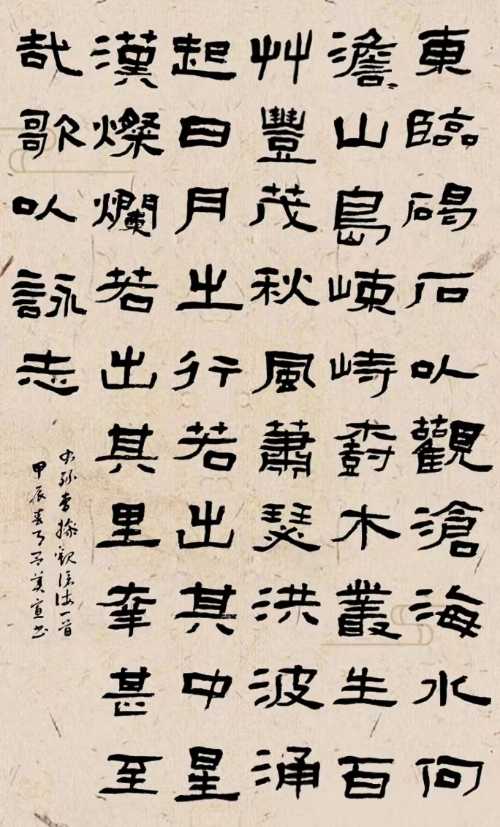 東臨碣石以觀滄海水何
澹〻山島崠峙樹木叢生百
艸豐茂秋風蕭瑟洪波涌
起日月之行若出其中星
漢燦爛若出其里幸甚至
哉歌以詠志
右録曹操觀滄海一首
甲辰春月美宣书